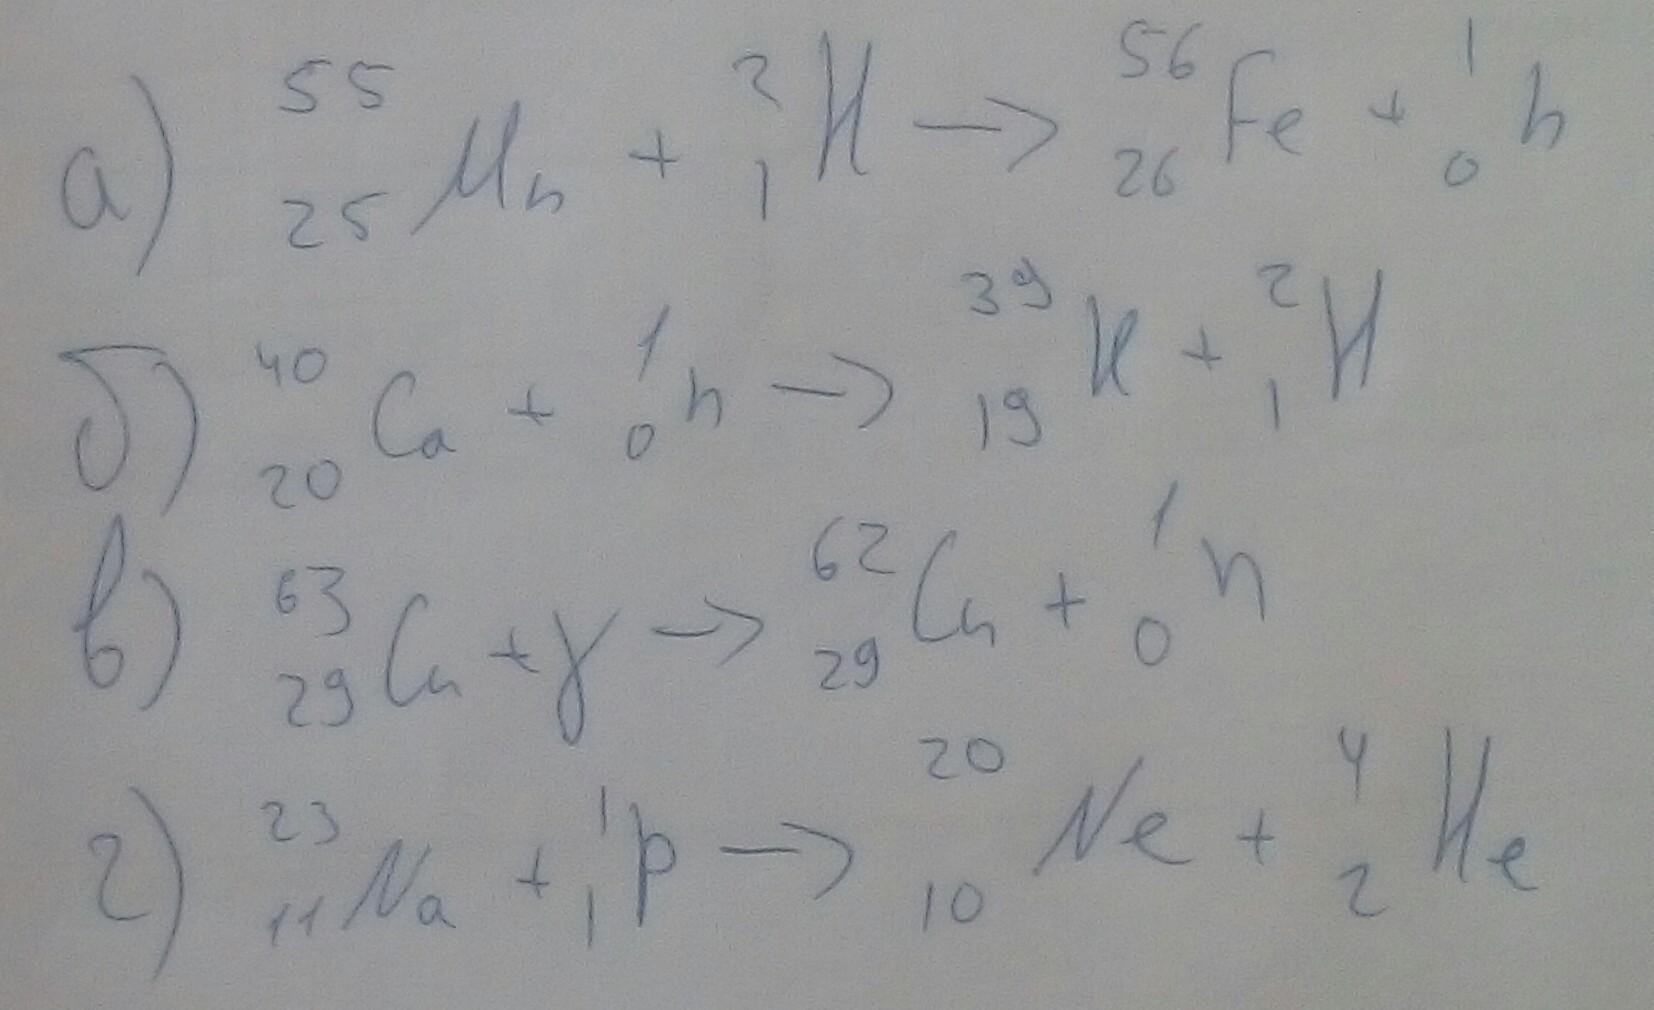 а) ⁵⁵₂₅Mn + ²₁H → ⁵⁶₂₆Fe + ¹₀n
б) ⁴⁰₂₀Ca + ¹₀n → ³⁹₁₉K + ²₁H
в) ⁶³₂₉Cu + γ → ⁶²₂₉Cu + ¹₀n
г) ²³₁₁Na + ¹₁p → ²⁰₁₀Ne + ⁴₂He